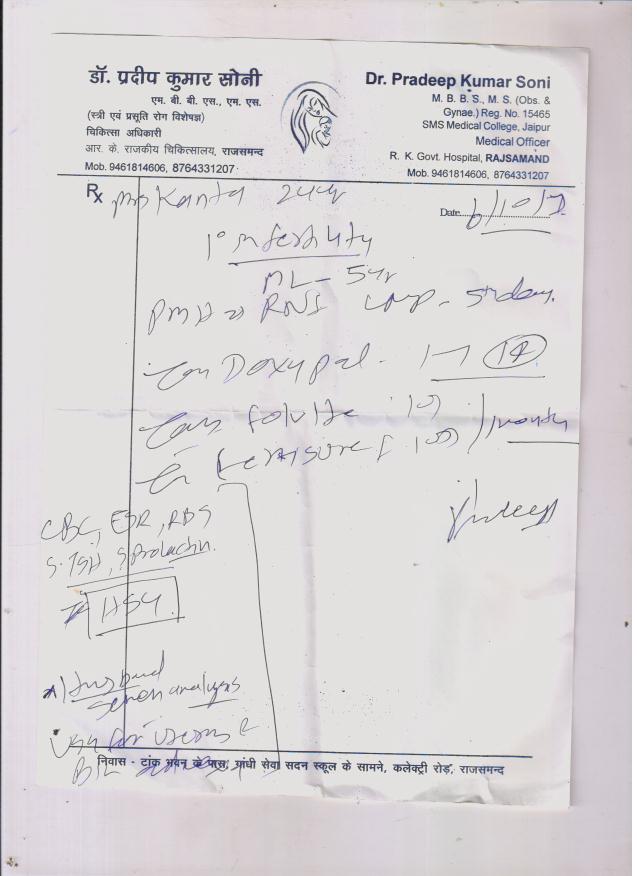 डॉ. प्रदीप कुमार सोनी
एम. बी. बी. एस., एम. एस.
(स्त्री एवं प्रसूति रोग विशेषज्ञ)
चिकित्सा अधिकारी
आर. के. राजकीय चिकित्सालय, राजसमन्द
Mob. 9461814606, 8764331207
Dr. Pradeep Kumar Soni
M. B. B. S., M. S. (Obs. &
Gynae.) Reg. No. 15465
SMS Medical College, Jaipur
Medical Officer
R. K. Govt. Hospital, RAJSAMAND
Mob. 9461814606, 8764331207
Rx Kanta 24 yr
Date 6/10/
1° Infertility
ML - 5yr
PMH RNS LMP - 5th day
Doxypal 14
Folvite
/ 1 month
CBC, ESR, RBS
S. TSH, S Prolactin.
HSG
Husband
semen analysis
for uterus
B/L
निवास - टांक भवन के पास, गांधी सेवा सदन स्कूल के सामने, कलेक्ट्री रोड़, राजसमन्द